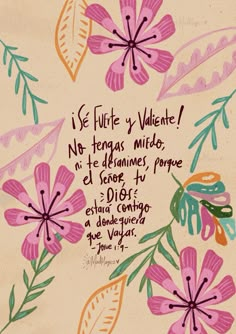 ¡Sé FuErte y Valiente!
No tengas miedo,
ni te desanimes, porque
el Señor tu
DIOS
estará contigo
a dondequiera
que vayas.
- Josué 1:9 -